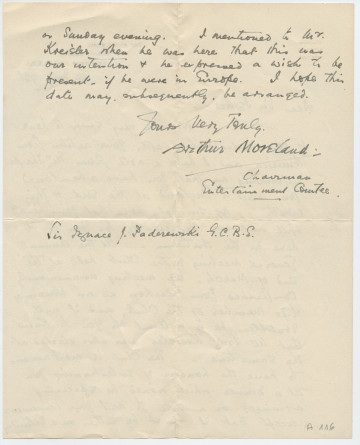 or Sunday evening. I mentioned to Mr.
Kreisler when he was here that this was
our intention & he expressed a wish to be
present - if he were in Europe. I hope this
date may, subsequently, be arranged.
Yours very truly.
Arthur Moreland:-
Chairman
Entertainment Comtee.
Sir Ignace J. Paderewski G.C.B.E.
A 116